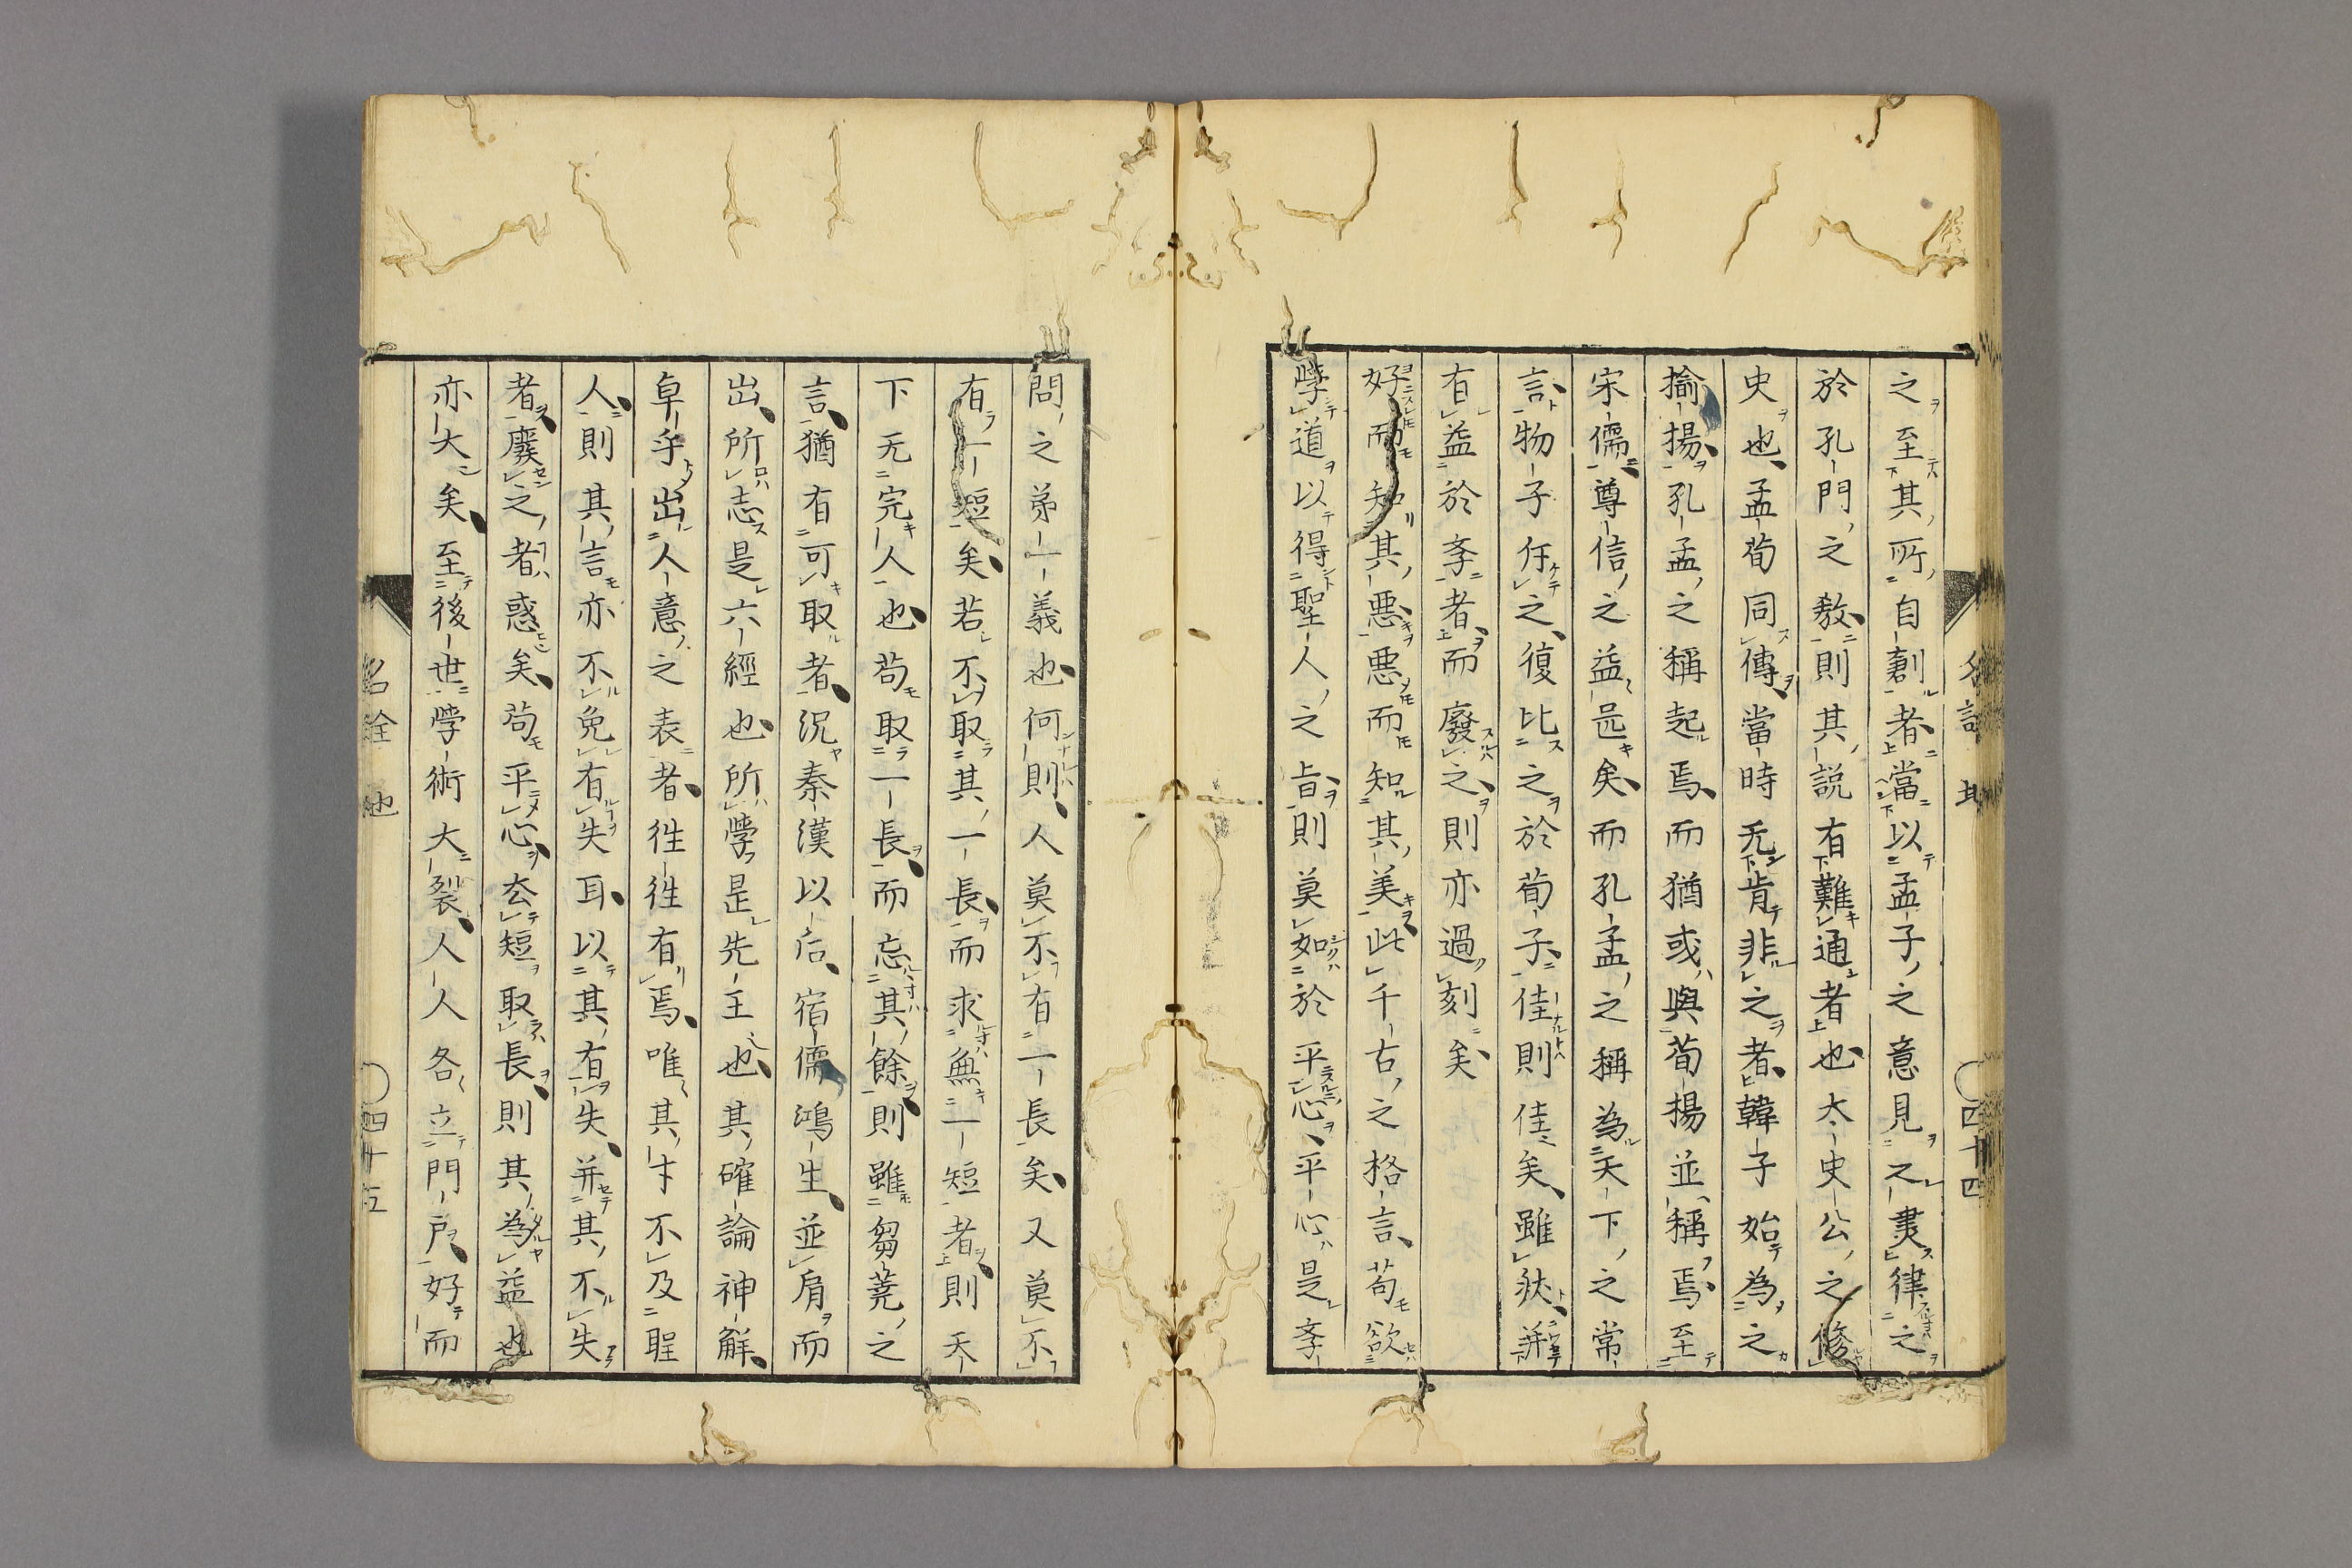 之至其所自創者當以孟子之意見之夷律之
於孔門之教則其説有難通者也太史公之修
史也孟荀同傳當時无肯非之者韓子始為之
揄揚孔孟之稱起焉而猶或與荀揚並稱焉至
宋儒尊信之益㞷矣而孔孟之稱為天下之常
言物子仵之復比之於荀子佳則佳矣雖狀併
有益於斈者而廢之則亦過刻矣
好而知其悪悪而知其美此千古之格言苟欲
斈道以得聖人之旨則莫如於平心平心是斈
名詮 地
四十四
問之第一義也何則人莫不有一長矣又莫不
有一短矣若不取其一長而求無一短者則天
下无完人也苟取一長而忘其餘則雖芻蕘之
言猶有可取者況秦漢以后宿儒鴻生並肩而
出所志是六經也所斈是先王也其確論神解
卓乎出人意之表者往往有焉唯其才不及聖
人則其言亦不免有失耳以其有失并其不失
者廢之者惑矣苟平心去短取長則其為益也
亦大矣至後世斈術大裂人人各立門戸好而
名詮 地
四十五